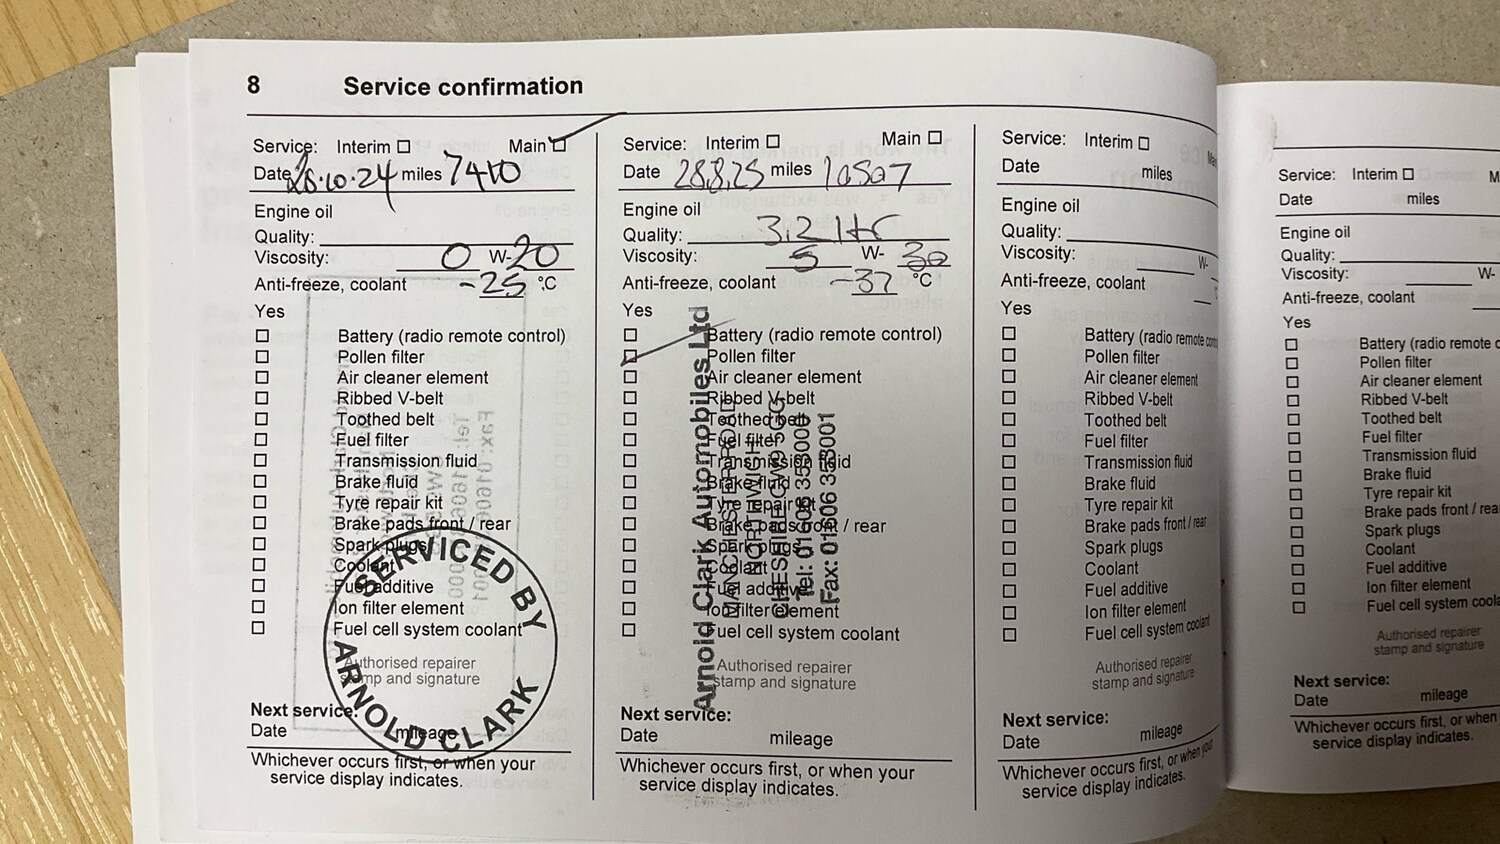 8 Service confirmation
Service: Interim Main
Date 28.10.24 miles 7410
Engine oil
Quality:
Viscosity: 0 W-20
Anti-freeze, coolant -25 °C
Yes
Battery (radio remote control)
Pollen filter
Air cleaner element
Ribbed V-belt
Toothed belt
Fuel filter
Transmission fluid
Brake fluid
Tyre repair kit
Brake pads front / rear
Spark plugs
Coolant
Fuel additive
Ion filter element
Fuel cell system coolant
Authorised repairer
stamp and signature
SERVICED BY
ARNOLD CLARK
Next service:
Date mileage
Whichever occurs first, or when your
service display indicates.
Service: Interim Main
Date 28.8.25 miles 10507
Engine oil
Quality: 3.2 ltr
Viscosity: 5 W- 30
Anti-freeze, coolant -37 °C
Yes
Battery (radio remote control)
Pollen filter
Air cleaner element
Ribbed V-belt
Toothed belt
Fuel filter
Transmission fluid
Brake fluid
Tyre repair kit
Brake pads front / rear
Spark plugs
Coolant
Fuel additive
Ion filter element
Fuel cell system coolant
Arnold Clark Automobiles Ltd
MANCHESTER ROAD
NORTHWICH
CHESHIRE CW9 5GG
Tel: 01606 353000
Fax: 01606 353001
Authorised repairer
stamp and signature
Next service:
Date mileage
Whichever occurs first, or when your
service display indicates.
Service: Interim
Date miles
Engine oil
Quality:
Viscosity: W-
Anti-freeze, coolant
Yes
Battery (radio remote contro
Pollen filter
Air cleaner element
Ribbed V-belt
Toothed belt
Fuel filter
Transmission fluid
Brake fluid
Tyre repair kit
Brake pads front / rear
Spark plugs
Coolant
Fuel additive
Ion filter element
Fuel cell system coolant
Authorised repairer
stamp and signature
Next service:
Date mileage
Whichever occurs first, or when your
service display indicates.
Service: Interim M
Date miles
Engine oil
Quality:
Viscosity: W-
Anti-freeze, coolant
Yes
Battery (radio remote c
Pollen filter
Air cleaner element
Ribbed V-belt
Toothed belt
Fuel filter
Transmission fluid
Brake fluid
Tyre repair kit
Brake pads front / rea
Spark plugs
Coolant
Fuel additive
Ion filter element
Fuel cell system coola
Authorised repairer
stamp and signature
Next service:
Date mileage
Whichever occurs first, or when
service display indicates.